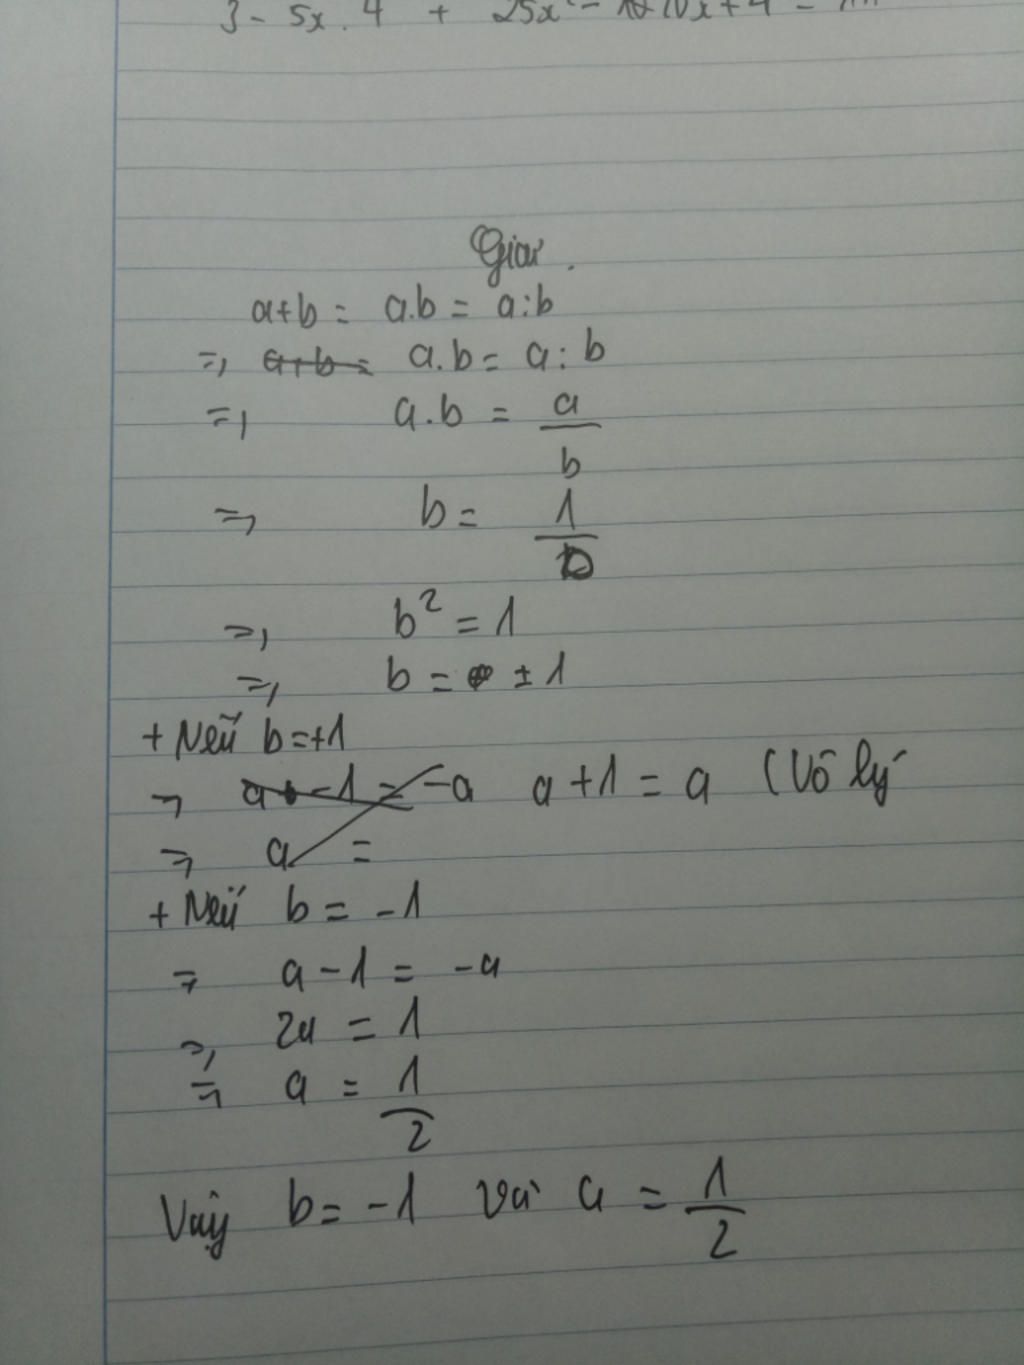 3 - 5x . 4 + 25x
Giải.
a+b = a.b = a:b
=> a+b = a.b = a:b
=> a.b = a/b
=> b = 1/b
=> b² = 1
=> b = ± 1
+ Nếu b=+1
=> a - 1 = -a a + 1 = a (Vô lý
=> a =
+ Nếu b = -1
=> a - 1 = -a
=> 2a = 1
=> a = 1/2
Vậy b = -1 và a = 1/2